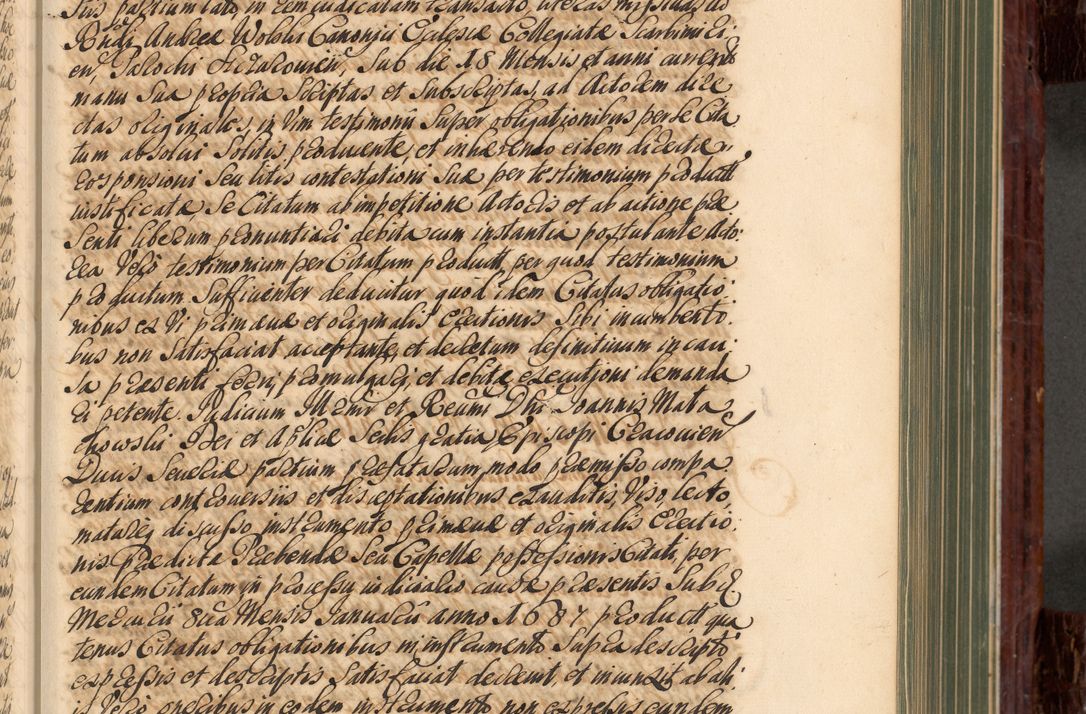 Rndi Andreæ Wolski Canonici Ecclesiæ Collegiatæ Scarbimiri
en, Parochi sub die 18 Mensis et anni curren
manu sua propria scriptas et subscriptas, ad Actorem dire
ctas originales, in vim testimonii super obligationibus per se Cita
tum absolvi solitis producente, et inhærendo eidem directæ
responsioni seu litis contestationi suæ per testimonium product
iustificatæ se Citatum ab impetitione Actoris et ab actione præ
senti liberum pronuntiari debita cum instantia postulante Acto:
rea vero testimonium per Citatum product per quod testimonium
productum sufficienter deducitur quod idem Citatus obligatio:
nibus ex vi primævæ et originalis erectionis sibi incumbenti:
bus non satisfaciat acceptante, et decretum definitivum in cau:
sa præsenti ferri, promulgari, et debitæ executioni demanda
ri petente. Judicium Illmi et Revmi Dni Joannis Mała
chowski Dei et Aplicæ Sedis gratia Episcopi Cracovien
Ducis Severiæ partium præfatarum, modo præmisso compa
rentium controversiis et disceptationibus exauditis, viso lecto
matureq discusso instrumento primævæ et originalis erectio:
nis prædictæ Præbendæ seu Capellæ possessionis Citati, per
eundem Citatum in processu iudiciali causæ præsentis sub d.
Mercurii 8va Mensis Januarii anno 1687 product qua
tenus Citatus obligationibus in instrumento supra descripto
expressis et descriptis satisfaciat decrevit, et iniunxit ab ali:
is vero oneribus in eodem instrumento non expressis eundem